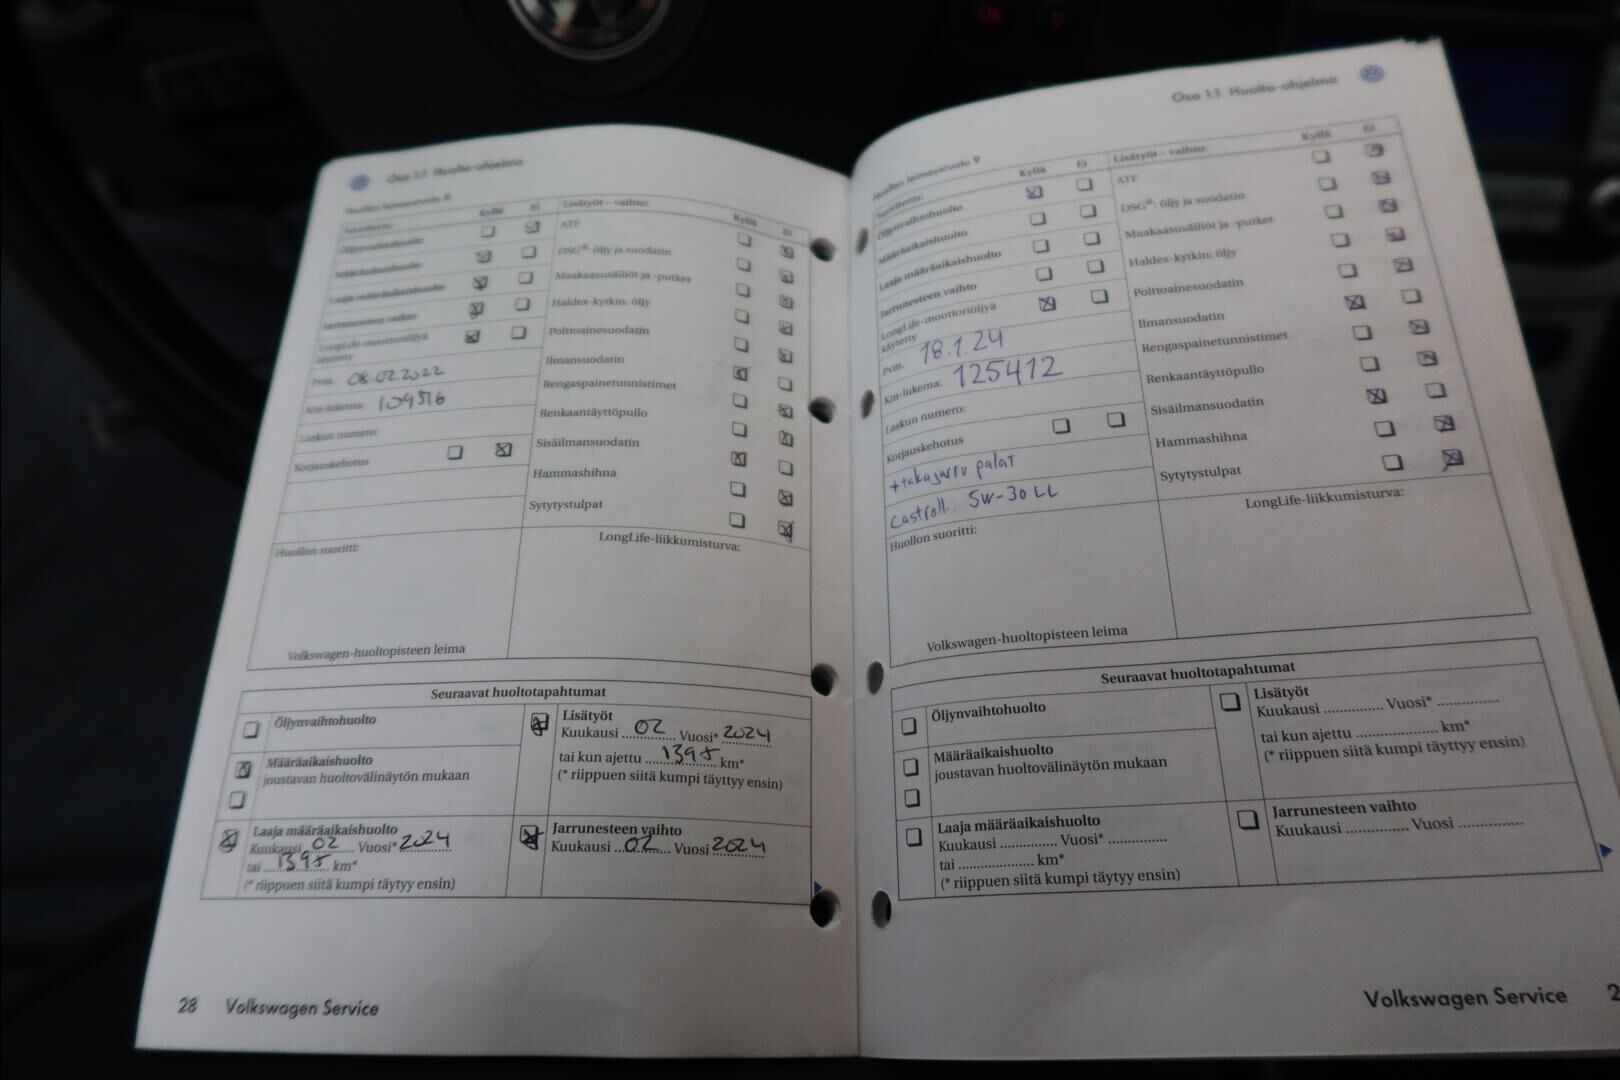 Osa 1.1 Huolto-ohjelma
Huollon leimausruutu 8
Suoritettu: Kyllä Ei
Öljynvaihtohuolto
Määräaikaishuolto
Laaja määräaikaishuolto
Jarrunesteen vaihto
LongLife-moottoriöljyä
käytetty
Pvm. 08.02.2022
Km-lukema: 109516
Laskun numero:
Korjauskehotus
Huollon suoritti:
Volkswagen-huoltopisteen leima
Lisätyöt – vaihto: Kyllä Ei
ATF
DSG®: öljy ja suodatin
Maakaasusäiliöt ja -putket
Haldex-kytkin: öljy
Polttoainesuodatin
Ilmansuodatin
Rengaspainetunnistimet
Renkaantäyttöpullo
Sisäilmansuodatin
Hammashihna
Sytytystulpat
LongLife-liikkumisturva:
Seuraavat huoltotapahtumat
Öljynvaihtohuolto
Määräaikaishuolto
joustavan huoltovälinäytön mukaan
Laaja määräaikaishuolto
Kuukausi 02 Vuosi* 2024
tai 1395 km*
(* riippuen siitä kumpi täytyy ensin)
Lisätyöt
Kuukausi 02 Vuosi* 2024
tai kun ajettu 1395 km*
(* riippuen siitä kumpi täyttyy ensin)
Jarrunesteen vaihto
Kuukausi 02 Vuosi 2024
28 Volkswagen Service
Osa 1.1 Huolto-ohjelma
Huollon leimausruutu 9
Suoritettu: Kyllä Ei
Öljynvaihtohuolto
Määräaikaishuolto
Laaja määräaikaishuolto
Jarrunesteen vaihto
LongLife-moottoriöljyä
käytetty
Pvm. 18.1.24
Km-lukema: 125412
Laskun numero:
Korjauskehotus
+takajarru palat
Castroll 5W-30 LL
Huollon suoritti:
Volkswagen-huoltopisteen leima
Lisätyöt – vaihto: Kyllä Ei
ATF
DSG®: öljy ja suodatin
Maakaasusäiliöt ja -putket
Haldex-kytkin: öljy
Polttoainesuodatin
Ilmansuodatin
Rengaspainetunnistimet
Renkaantäyttöpullo
Sisäilmansuodatin
Hammashihna
Sytytystulpat
LongLife-liikkumisturva:
Seuraavat huoltotapahtumat
Öljynvaihtohuolto
Määräaikaishuolto
joustavan huoltovälinäytön mukaan
Laaja määräaikaishuolto
Kuukausi ............... Vuosi* ...............
tai .................... km*
(* riippuen siitä kumpi täytyy ensin)
Lisätyöt
Kuukausi ............... Vuosi* ...............
tai kun ajettu .................... km*
(* riippuen siitä kumpi täyttyy ensin)
Jarrunesteen vaihto
Kuukausi ............... Vuosi ...............
Volkswagen Service
OK